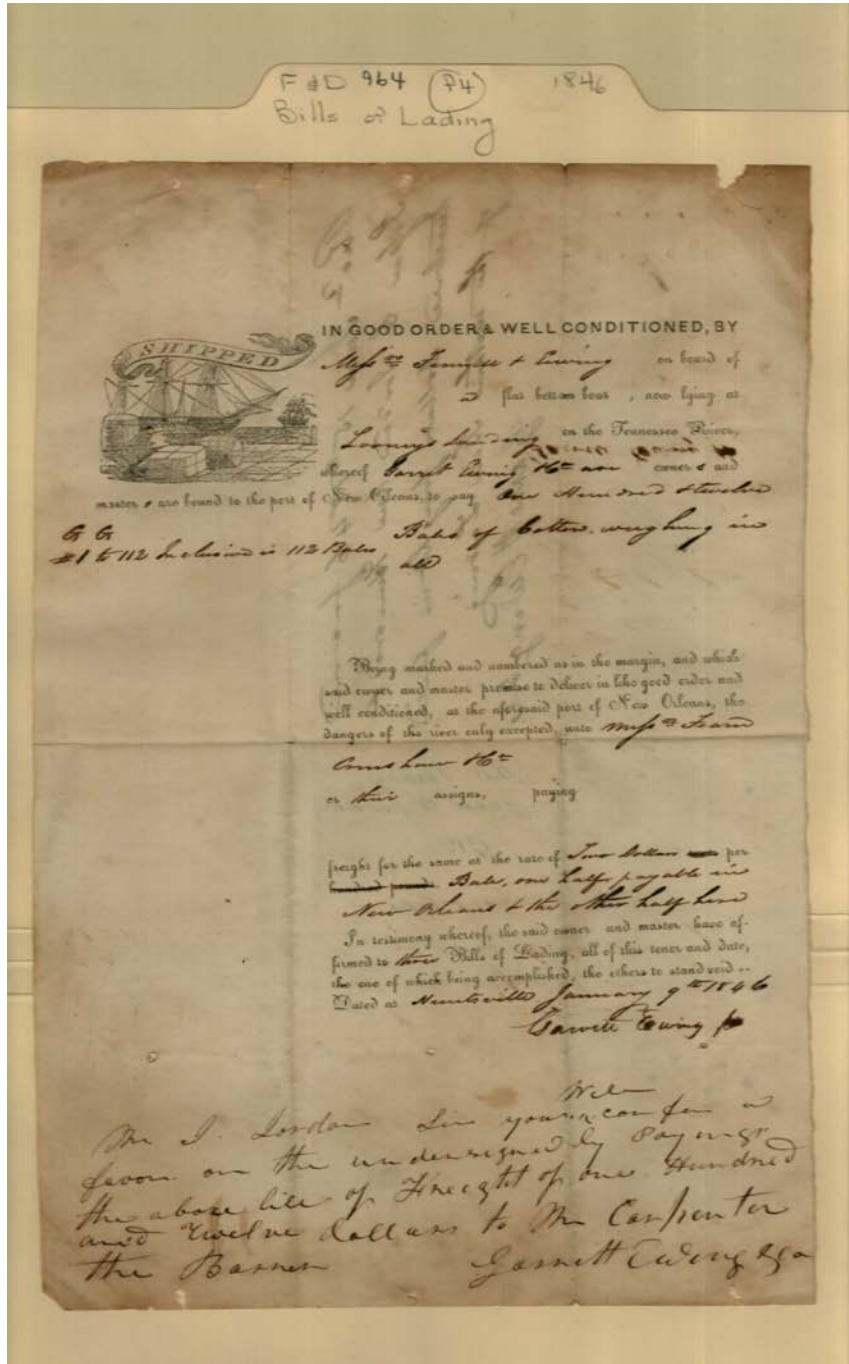 F & D 964 P4 1846
Bills of Lading
SHIPPED
IN GOOD ORDER & WELL CONDITIONED, BY
Messrs & Ewing on board of
a flat bottom boat, now lying at
Looneys Landing on the Tennessee River,
whereof Garret Ewing & Co are owners and
masters are bound to the port of New Orleans, to say One Hundred & twelve
G G
#1 to 112 Inclusive is 112 Bales
Bales of Cotton, weighing in
all
Being marked and numbered as in the margin, and which
said owner and master promise to deliver in like good order and
well conditioned, at the aforesaid port of New Orleans, the
dangers of the river only excepted, unto Messrs
& Co
or their assigns, paying
freight for the same at the rate of Two Dollars per
hundred pounds Bale, one half payable in
New Orleans & the other half here
In testimony whereof, the said owner and master have af-
firmed to three Bills of Lading, all of this tenor and date,
the one of which being accomplished, the others to stand void..
Dated at Huntsville January 9th 1846
Garrett Ewing
Mr J. Jordan Sir you will confer a
favor on the undersigned by Paying
the above bill of Freight of one Hundred
and Twelve dollars to Mr Carpenter
the Barrer Garrett Ewing & Co